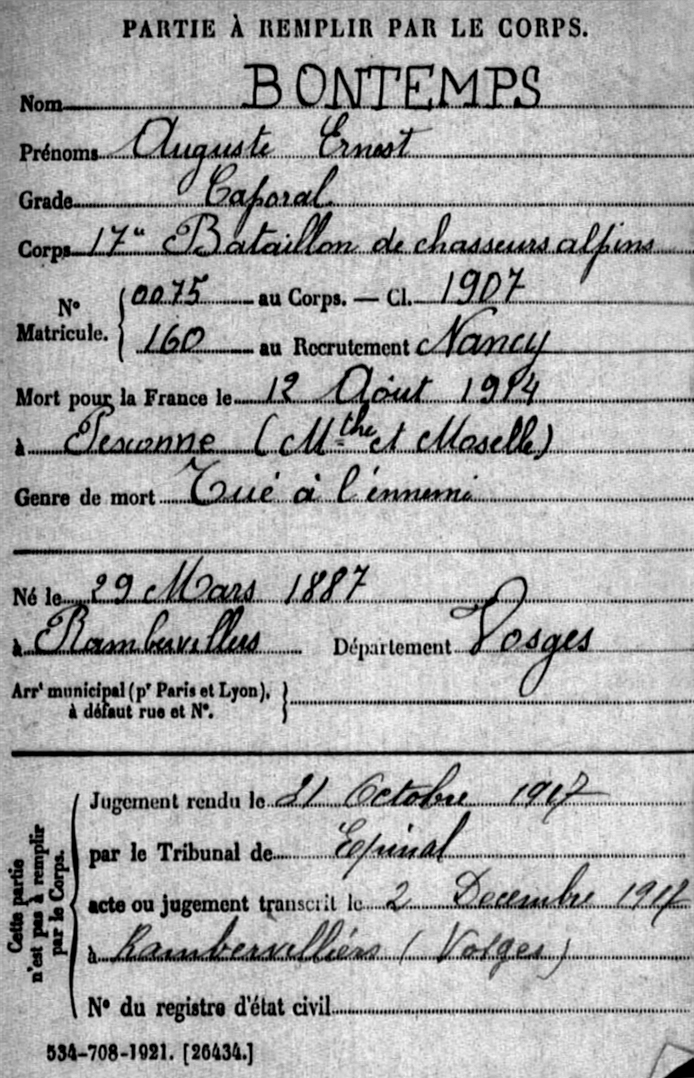 PARTIE À REMPLIR PAR LE CORPS.
Nom BONTEMPS
Prénoms Auguste Ernest
Grade Caporal
Corps 17e Bataillon de chasseurs alpins
N° Matricule. 0075 au Corps. — Cl. 1907
160 au Recrutement Nancy
Mort pour la France le 12 Août 1914
à Pexonne (Mthe et Moselle)
Genre de mort Tué à l'énnemi
Né le 29 Mars 1887
à Rambervillers Département Vosges
Arrt municipal (pr Paris et Lyon),
à défaut rue et N°.
Cette partie
n'est pas à remplir
par le Corps.
Jugement rendu le 21 Octobre 1917
par le Tribunal de Epinal
acte ou jugement transcrit le 2 Decembre 1917
à Rambervilliérs (Vosges)
N° du registre d'état civil
534-708-1921. [26434.]